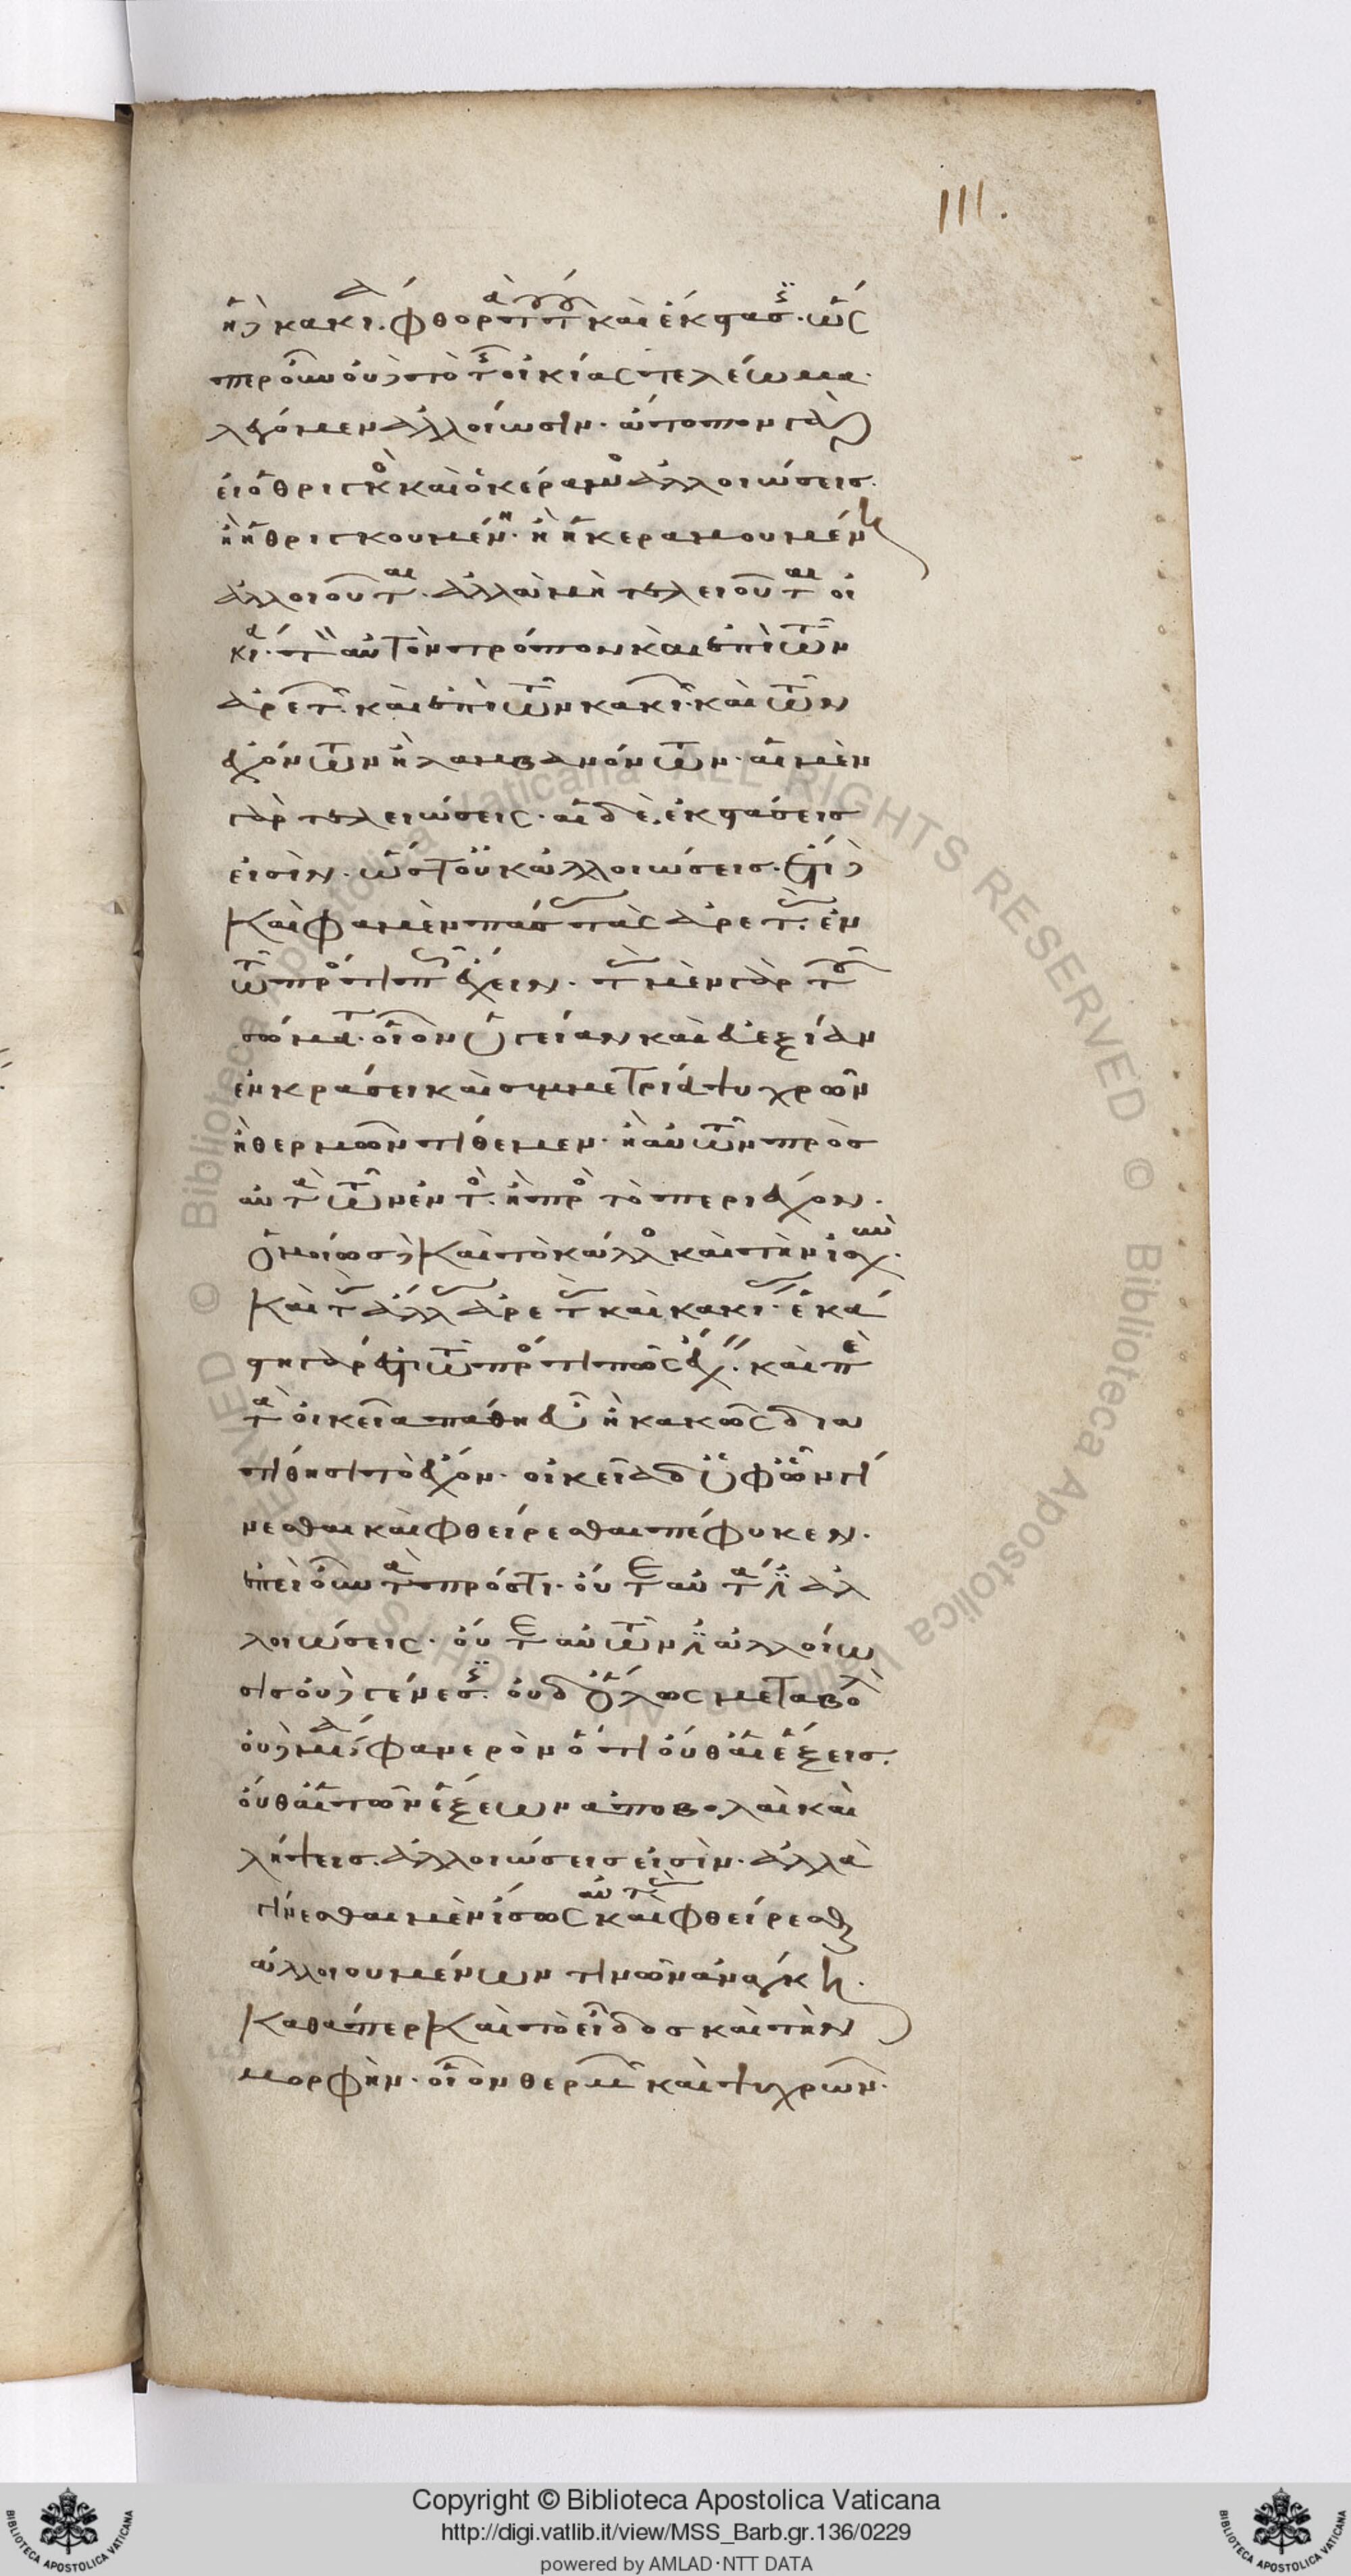 111.
ἡ δὲ κακία φθορὰ τούτου καὶ ἔκστασις· ὥς
περ οὖν οὐδὲ τὸ τῆς οἰκίας τελέωμα
λέγομεν ἀλλοίωσιν· ἄτοπον γὰρ
εἰ ὁ θριγκὸς καὶ ὁ κέραμος ἀλλοιώσεις·
ἢ ἡ θριγκουμένη· ἢ ἡ κεραμουμένη
ἀλλοιοῦται· ἀλλὰ μὴ τελειοῦται οἰ
κία· τὸν αὐτὸν τρόπον καὶ ἐπὶ τῶν
ἀρετῶν· καὶ ἐπὶ τῶν κακιῶν· καὶ τῶν
ἐχόντων ἢ λαμβανόντων· αἱ μὲν
γὰρ τελειώσεις· αἱ δὲ, ἐκστάσεις
εἰσίν· ὥστ' οὐκ ἀλλοιώσεις· ἔτι δὲ
καὶ φαμὲν πάσας τὰς ἀρετὰς· ἐν
τῶ πρός τι πῶς ἔχειν· τὰς μὲν γὰρ τοῦ
σώματος· οἷον ὑγείαν καὶ εὐεξίαν
ἐν κράσει καὶ συμμετρία ψυχρῶν
ἢ θερμῶν τίθεμεν· ἢ αὐτῶν πρὸς
αὐτὰ τῶν ἐντός· ἢ πρὸς τὸ περιέχον·
ὁμοίως δὲ καὶ τὸ κάλλος καὶ τὴν ἰσχύν·
καὶ τὰς ἄλλας ἀρετὰς καὶ κακίας· ἑκά
στη γὰρ ἔστι τῶ πρός τι πῶς ἔχειν· καὶ περὶ
τὰ οἰκεῖα πάθη εὖ ἢ κακῶς δια
τίθησι τὸ ἔχον· οἰκεῖα δ' ὑφ' ὧν γί
νεσθαι καὶ φθείρεσθαι πέφυκεν·
ἐπεὶ οὖν τὰ πρός τι· οὔτε αὐτά ἐστιν ἀλ
λοιώσεις· οὔτε αὐτῶν ἐστὶν ἀλλοίω
σις οὐδὲ γένεσις· οὐδ' ὅλως μεταβολὴ
οὐδεμία, φανερὸν ὅτι οὔθ' αἱ ἕξεις·
οὔθ' αἱ τῶν ἕξεων ἀποβολαὶ καὶ
λήψεις· ἀλλοιώσεις εἰσίν· ἀλλὰ
γίνεσθαι μὲν ἴσως αὐτὰς καὶ φθείρεσθαι
ἀλλοιουμένων τινῶν ἀνάγκη·
καθάπερ καὶ τὸ εἶδος καὶ τὴν
μορφὴν· οἷον θερμῶν καὶ ψυχρῶν·
Copyright © Biblioteca Apostolica Vaticana
http://digi.vatlib.it/view/MSS_Barb.gr.136/0229
powered by AMLAD·NTT DATA